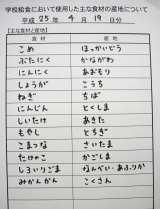 学校給食において使用した主な食材の産地について
平成 25 年 4 月 19 日分
【主な食材と産地】
食材 産地
こめ ほっかいどう
ぶたにく かながわ
にんにく あおもり
しょうが こうち
ねぎ ちば
にんじん とくしま
いたけ あきた
もやし とちぎ
こまつな さいたま
たけのこ かごしま
しろいりごま
みかんかん こくさん